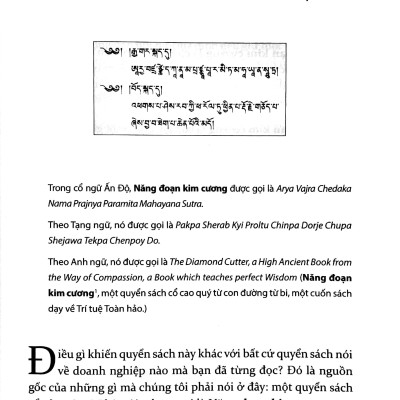 ༄༅། །རྒྱ་གར་སྐད་དུ།
ཨཱརྱ་བཛྲ་ཙྪེ་ད་ཀཱ་ནཱ་མ་པྲ་ཛྙཱ་པཱ་ར་མི་ཏ་མ་ཧཱ་ཡཱ་ན་སཱུ་ཏྲ།
༄༅། །བོད་སྐད་དུ།
འཕགས་པ་ཤེས་རབ་ཀྱི་ཕ་རོལ་ཏུ་ཕྱིན་པ་རྡོ་རྗེ་གཅོད་པ་
ཞེས་བྱ་བ་ཐེག་པ་ཆེན་པོའི་མདོ།
Trong cổ ngữ Ấn Độ, Năng đoạn kim cương được gọi là Arya Vajra Chedaka
Nama Prajnya Paramita Mahayana Sutra.
Theo Tạng ngữ, nó được gọi là Pakpa Sherab Kyi Proltu Chinpa Dorje Chupa
Shejawa Tekpa Chenpoy Do.
Theo Anh ngữ, nó được gọi là The Diamond Cutter, a High Ancient Book from
the Way of Compassion, a Book which teaches perfect Wisdom (Năng đoạn
kim cương¹, một quyển sách cổ cao quý từ con đường từ bi, một cuốn sách
dạy về Trí tuệ Toàn hảo.)
Điều gì khiến quyển sách này khác với bất cứ quyển sách nói
về doanh nghiệp nào mà bạn đã từng đọc? Đó là nguồn
gốc của những gì mà chúng tôi phải nói ở đây: một quyển sách